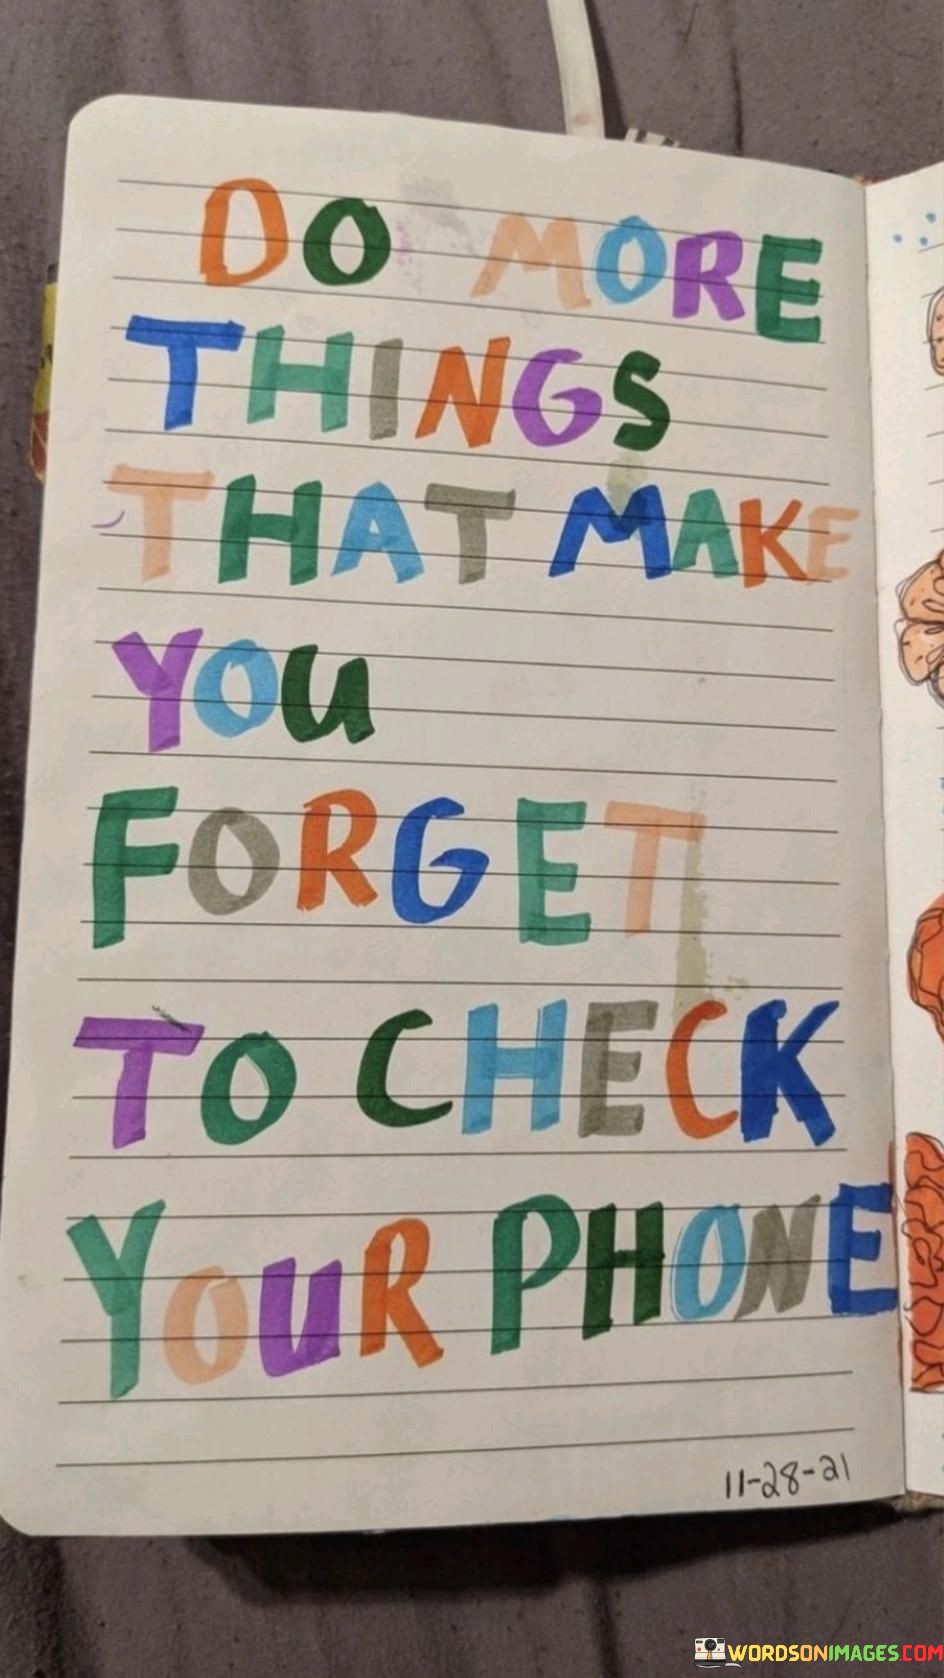 DO MORE
THINGS
THAT MAKE
YOU
FORGET
TO CHECK
YOUR PHONE
11-28-21
WORDSONIMAGES.COM